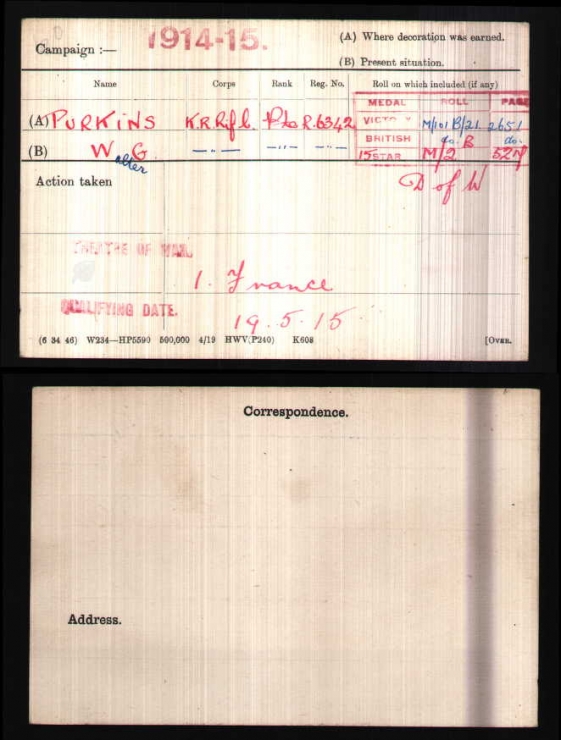 Campaign :— 1914-15. (A) Where decoration was earned.
(B) Present situation.
Name Corps Rank Reg. No. Roll on which included (if any)
MEDAL ROLL PAGE
(A) PURKINS K.R.Rif.C. Pte R.6342 VICTORY M/101B/21 2651
(B) W. G. —"— —"— —"— BRITISH do. B do.
Walter 15 STAR M/2 B 527
Action taken D of W
THEATRE OF WAR.
1. France
QUALIFYING DATE.
19.5.15
(6 34 46) W234—HP5590 500,000 4/19 HWV(P240) K608 [OVER.
Correspondence.
Address.